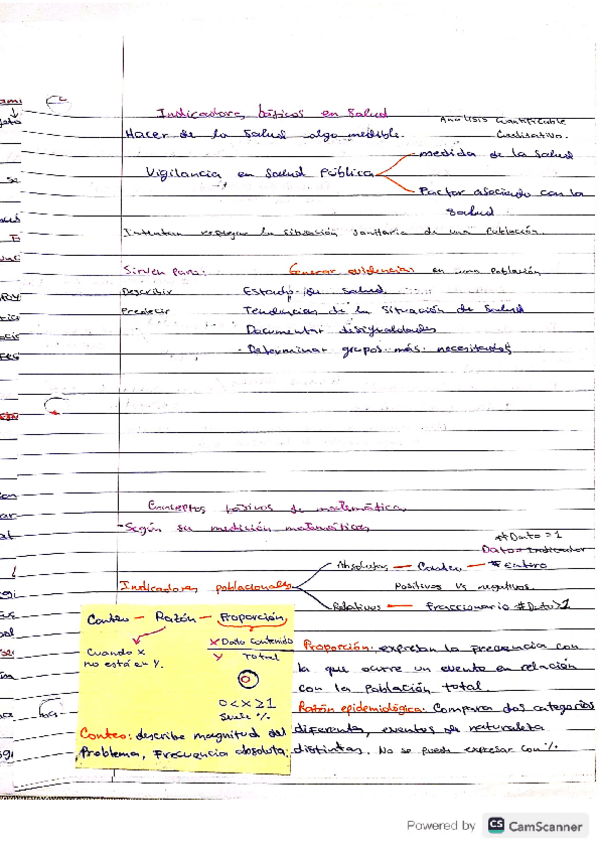 Indicadores básicos en Salud
Análisis Cuantificable
Cualitativo.
Hacer de la Salud algo medible.
medida de la Salud
Vigilancia en Salud Pública
Factor asociado con la
Salud
Intentan reflejar la situación sanitaria de una Población.
Sirven para: Generar evidencias en una población
Describir Estado de salud
Predecir Tendencias de la Situación de Salud
Documentar desigualdades
- Determinar grupos más necesitados
Conceptos básicos de matemática,
- Según su medición matemática,
# Dato = 1
Dato = Indicador
Absolutas — Conteo — # Entero
Indicadores poblacionales Positivos vs negativos.
Relativos — Fraccionario # Dato > 1
Conteo — Razón — Proporción
Cuando x
no está en y.
x Dato contenido
y Total
0 < x ≥ 1
Suele %
Conteo: describe magnitud del
Problema, Frecuencia absoluta.
Proporción: expresan la frecuencia con
la que ocurre un evento en relación
con la población total.
Razón epidemiológica: Compara dos categorías
diferentes, eventos de naturaleza
distintas. No se puede expresar con %.
Powered by CS CamScanner